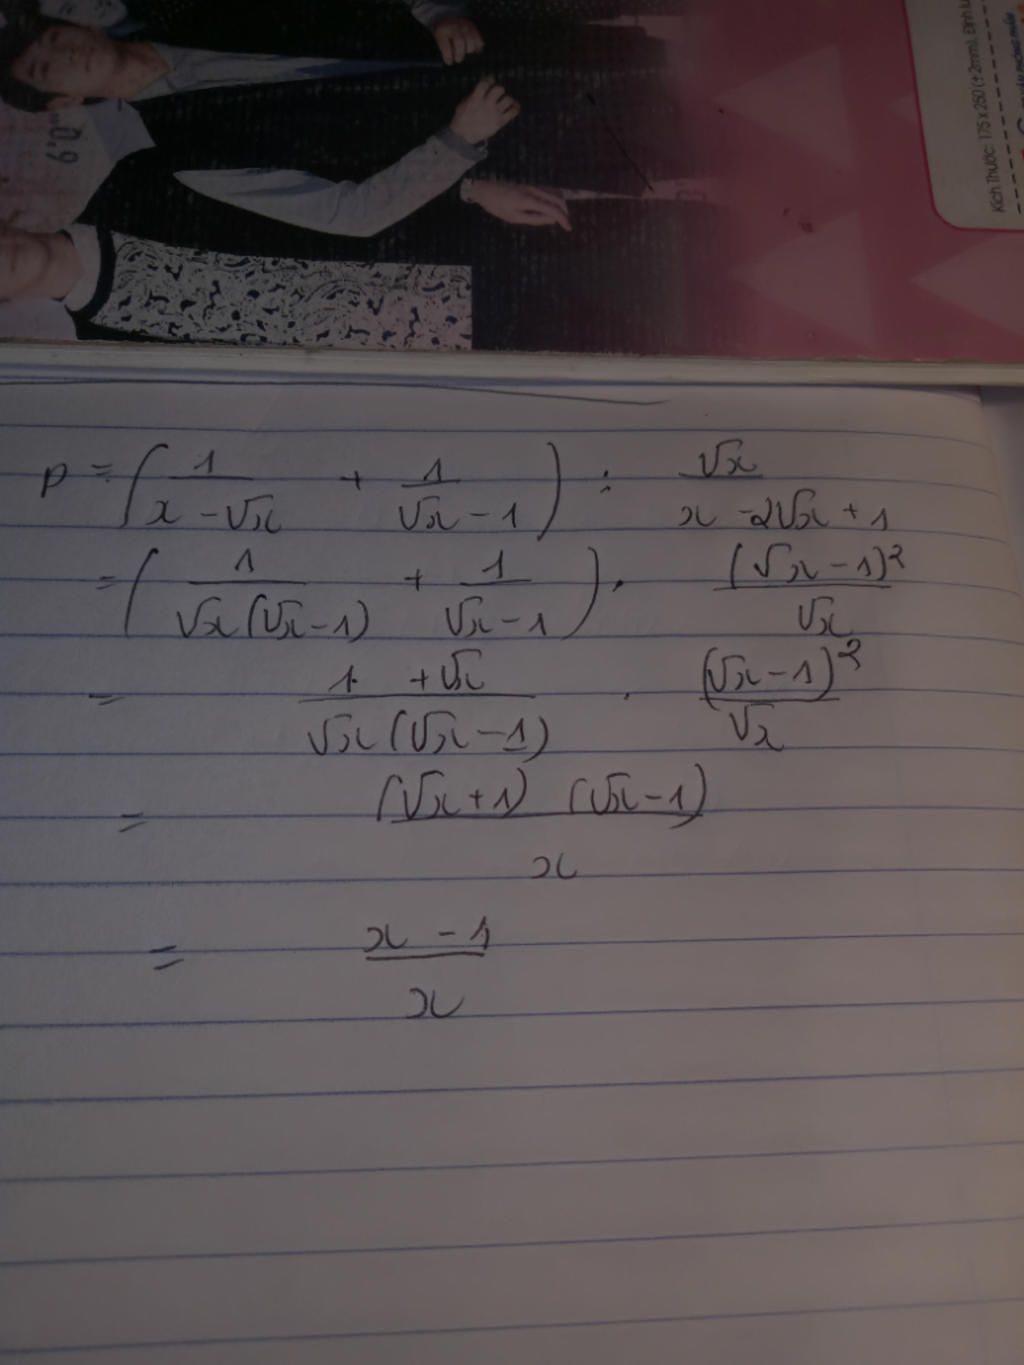 Kích Thước: 175 x 250 (±2mm), Định lư
P = ( 1/(x - √x) + 1/(√x - 1) ) : √x/(x - 2√x + 1)
= ( 1/(√x(√x - 1)) + 1/(√x - 1) ) . (√x - 1)²/√x
= (1 + √x)/(√x(√x - 1)) . (√x - 1)²/√x
= (√x + 1) (√x - 1)/x
= (x - 1)/x